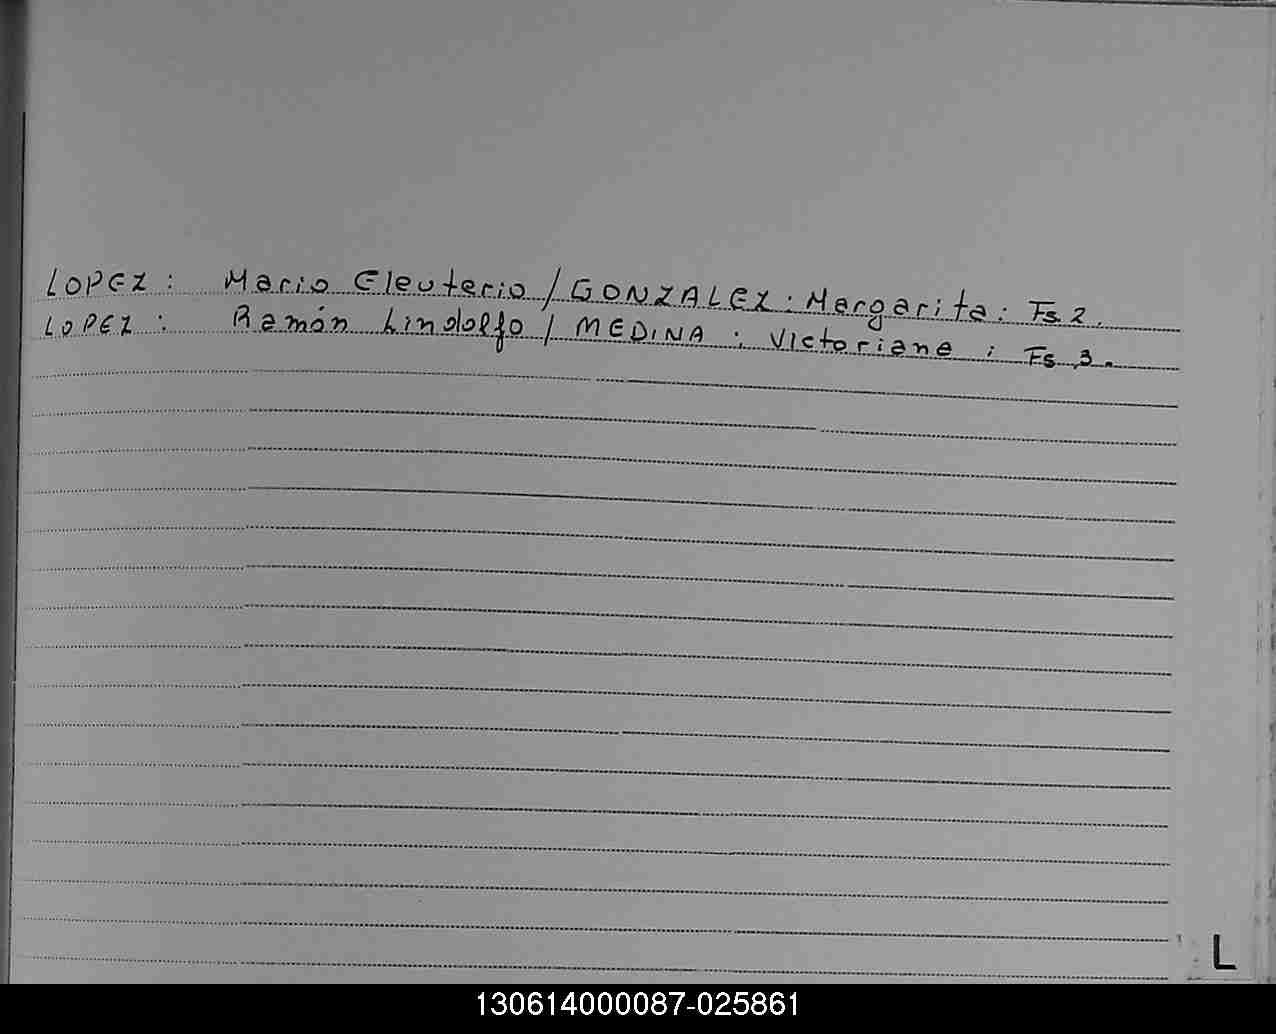 LOPEZ: Mario Eleuterio / GONZALEZ: Margarita: Fs 2.
LOPEZ: Ramón Lindolfo / MEDINA: Victoriana: Fs 3.
L
130614000087-025861